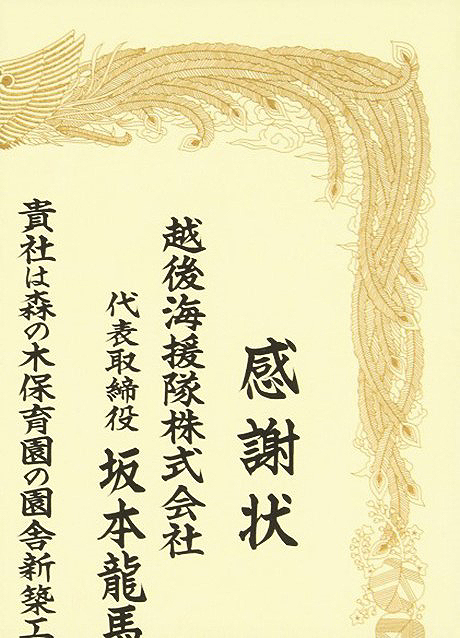 感謝状
越後海援隊株式会社
代表取締役 坂本龍馬
貴社は森の木保育園の園舎新築工